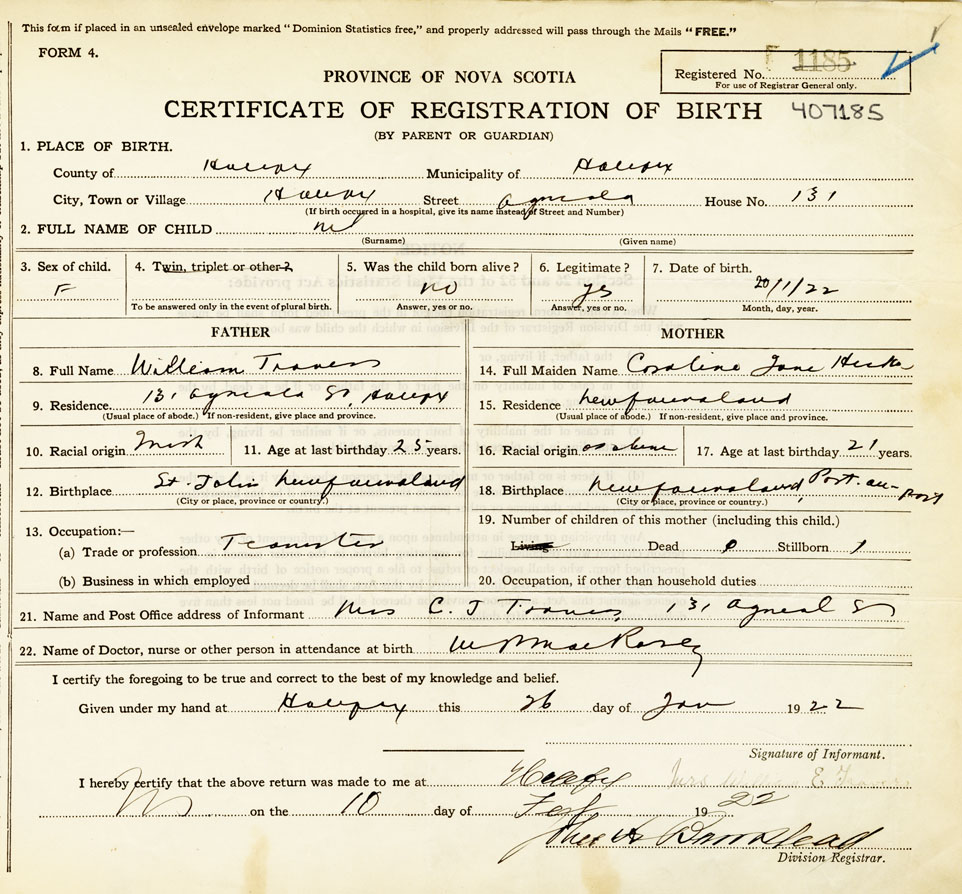 This form if placed in an unsealed envelope marked "Dominion Statistics free," and properly addressed will pass through the Mails "FREE."
FORM 4.
Registered No. 1185
For use of Registrar General only.
PROVINCE OF NOVA SCOTIA
CERTIFICATE OF REGISTRATION OF BIRTH 407185
(BY PARENT OR GUARDIAN)
1. PLACE OF BIRTH.
County of Halifax Municipality of Halifax
City, Town or Village Halifax Street Agricola House No. 131
(If birth occurred in a hospital, give its name instead of Street and Number)
2. FULL NAME OF CHILD
(Surname) (Given name)
3. Sex of child. 4. Twin, triplet or other? 5. Was the child born alive? 6. Legitimate? 7. Date of birth.
F no yes 20/1/22
To be answered only in the event of plural birth. Answer, yes or no. Answer, yes or no. Month, day, year.
FATHER MOTHER
8. Full Name William Travers 14. Full Maiden Name Caroline Jane
9. Residence. 131 Agricola St. Halifax 15. Residence Newfoundland
(Usual place of abode.) If non-resident, give place and province. (Usual place of abode.) If non-resident, give place and province.
10. Racial origin Irish 11. Age at last birthday 25 years. 16. Racial origin as above 17. Age at last birthday 21 years.
12. Birthplace St. John Newfoundland 18. Birthplace Newfoundland, Port-au-port
(City or place, province or country.) (City or place, province or country.)
13. Occupation:— 19. Number of children of this mother (including this child.)
(a) Trade or profession Teamster Living Dead Stillborn 1
(b) Business in which employed 20. Occupation, if other than household duties
21. Name and Post Office address of Informant Mrs C. J Travers, 131 St
22. Name of Doctor, nurse or other person in attendance at birth
I certify the foregoing to be true and correct to the best of my knowledge and belief.
Given under my hand at Halifax this 26 day of Jan 1922
Signature of Informant.
I hereby certify that the above return was made to me at Halifax Mrs William E Travers
on the 10 day of Feb 1922
Division Registrar.